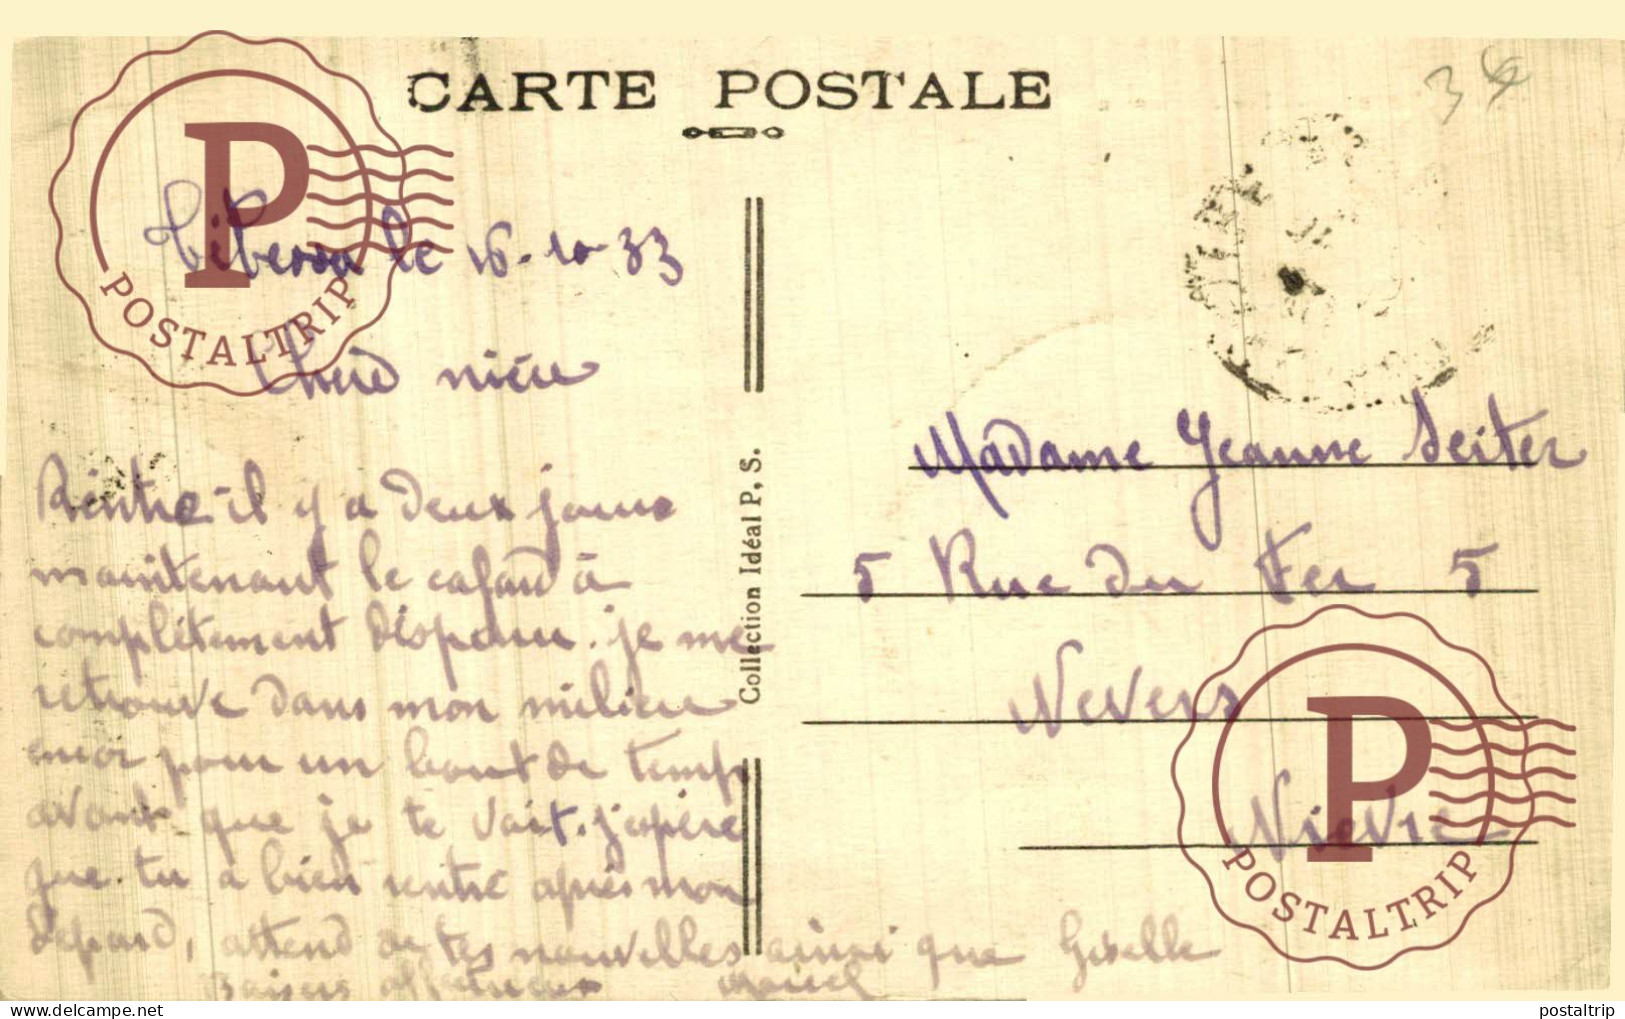 CARTE POSTALE
Tébessa le 16-10-33
Cherd nièce
Rentre il y a deux jours
maintenant le cafard à
complétement disparu. je me
retrouve dans mon milieu
pour un bout de temps
avant que je te voit. j'espère
que tu a bien rentré après mon
départ, attend de tes nouvelles ainsi que Giselle
Baisers affectueux Marcel
Collection Idéal P. S.
Madame Jeanne Seiter
5 Rue du Fer 5
Nevers
Nièvre
34
P
POSTALTRIP
P
POSTALTRIP
www.delcampe.net
postaltrip